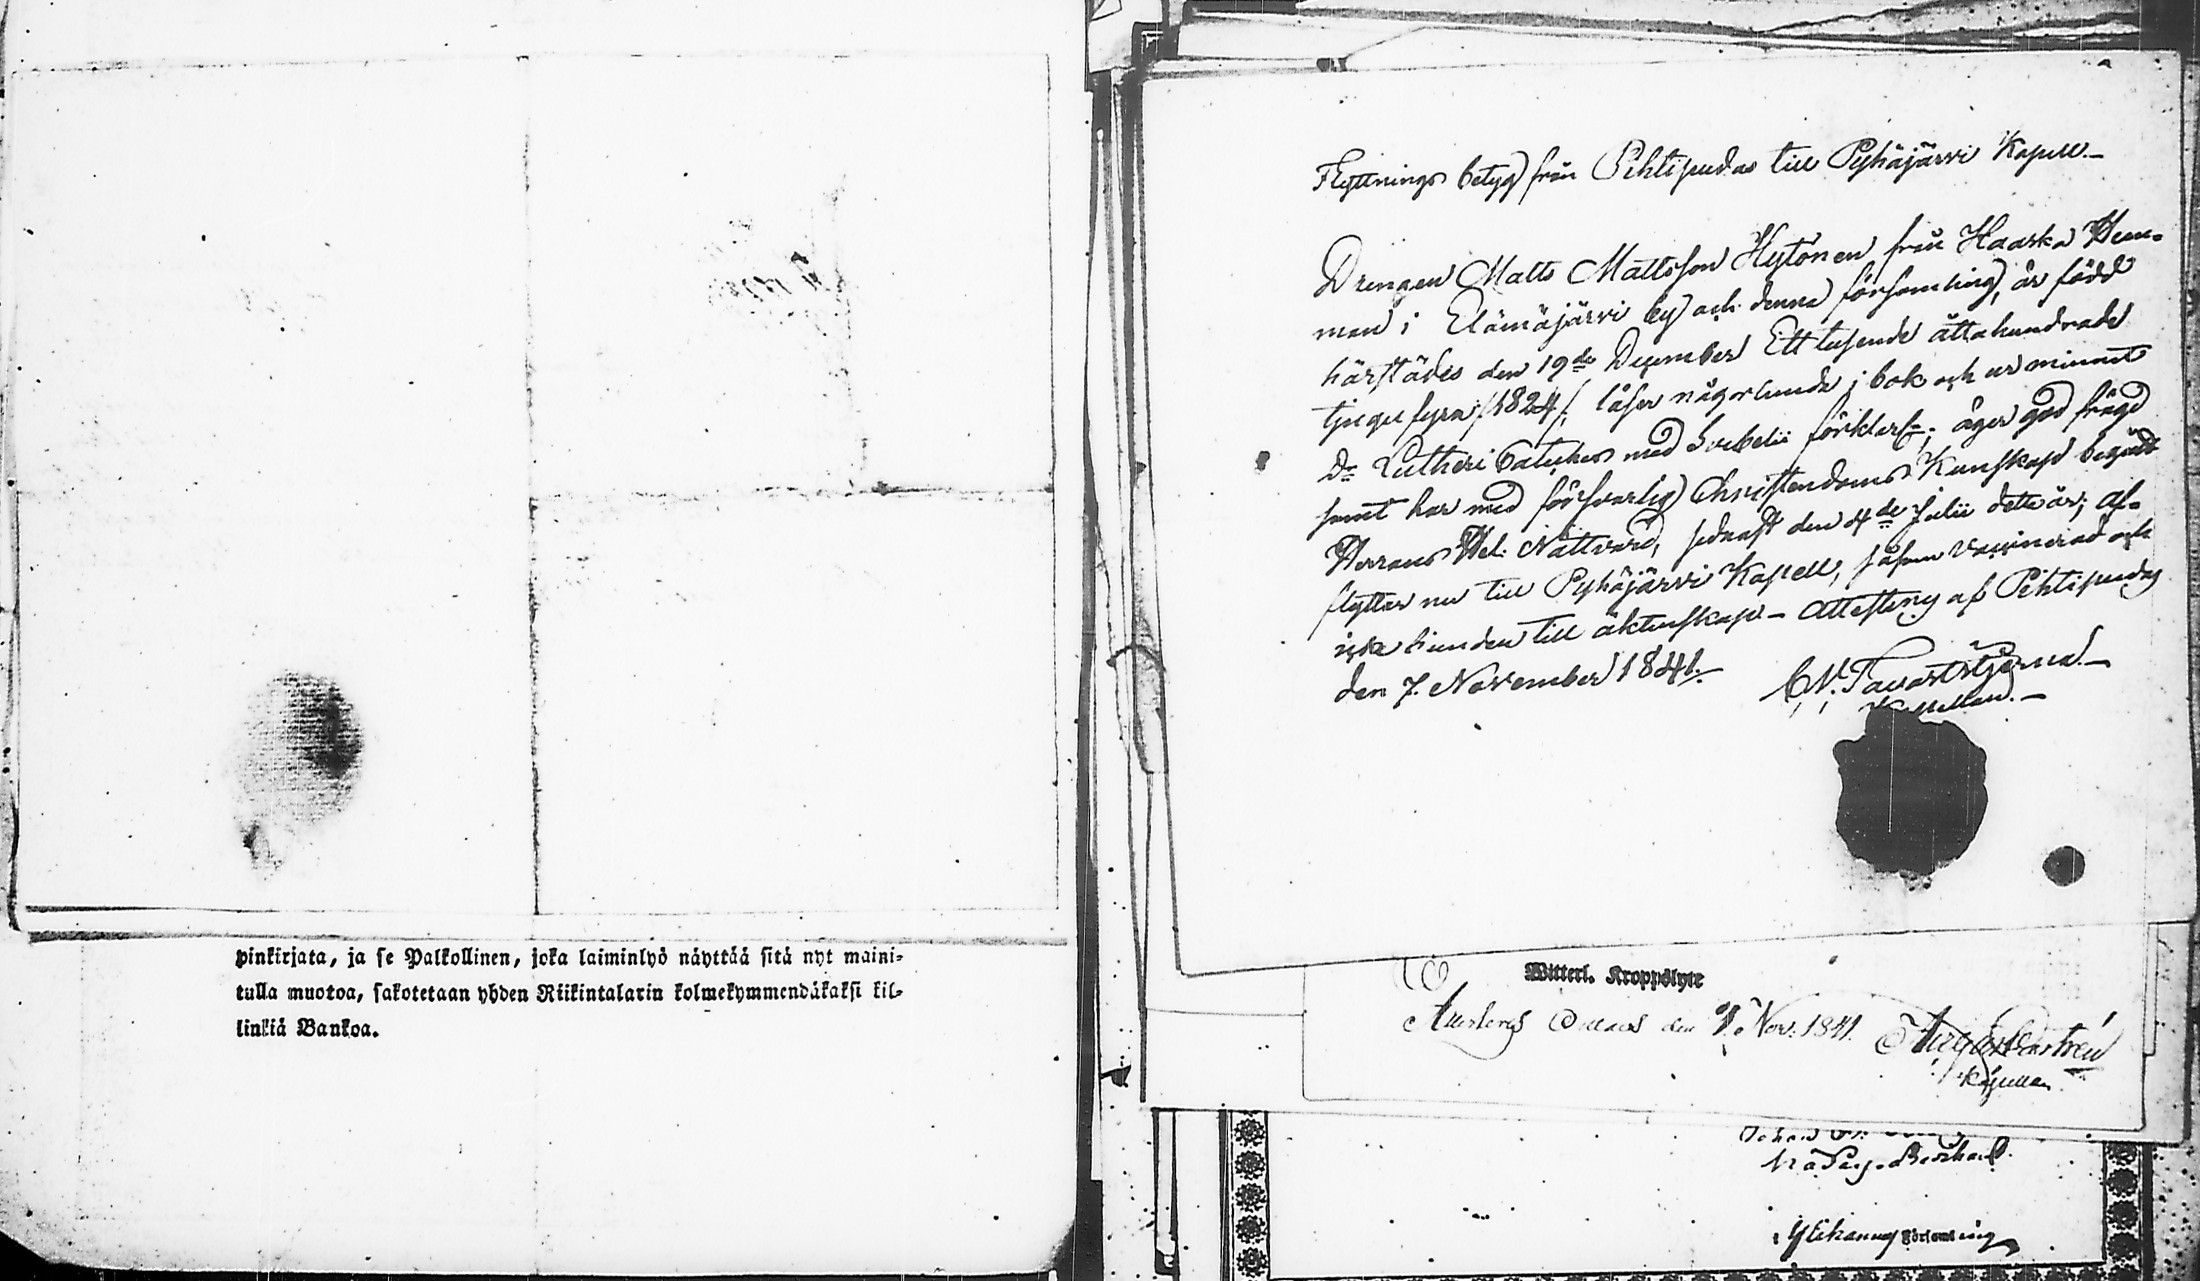 pinkirjata, ja se Palkollinen, joka laiminlyö näyttää sitä nyt maini-
tulla muotoa, sakotetaan yhden Riikintalarin kolmekymmendäkaksi kil-
linkiä Bankoa.
Flyttnings betyg från Pihtipudas till Pyhäjärvi Kapell.-
Drengen Matts Mattsson Hytönen från Haaska Hem-
man i Elämäjärvi by och denna församling, är född
härstädes den 19de December Ett tusende åttahundrade
tjugu fyra /:1824/: läser någorlunda i bok och ur minnet
Dr Lutheri Cateches med Svebelii förklar:, äger god frägd
samt har med försvarlig Christendoms Kunskap begådt
Herrans Hel. Nattvard, sednast den 4de Julii detta år; af-
flyttar nu till Pyhäjärvi Kapell, såsom vaccinerad och
icke bunden till äktenskap - Attesteras af Pihtipudas
den 7. November 1841.-
C.N. Tavaststjerna.-
Kapellan.-
Witterl. Kroppslyte
Attesteras den Nov. 1841.
Kapellan
församling